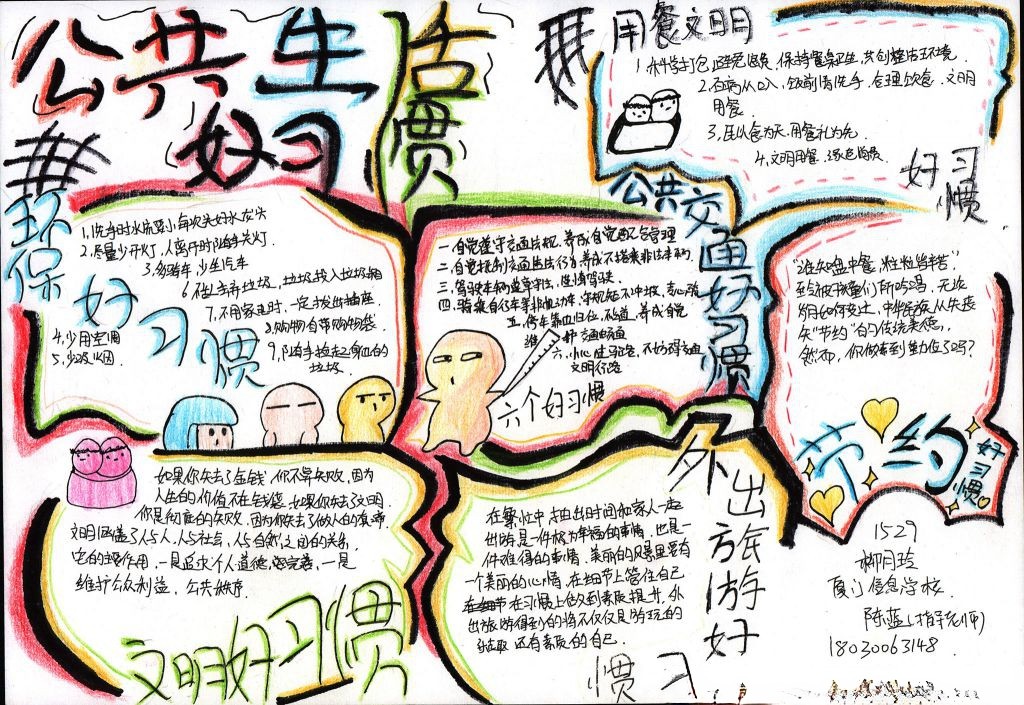 公共生活
好习惯
用餐文明
1.科学打包,避免浪费,保持餐桌卫生,共创整洁环境.
2.百病从口入,饭前请洗手,合理饮食,文明
用餐
3,民以食为天,用餐礼为先.
4.文明用餐
好习
惯
环保
好
习惯
1,洗手时水流要小,每次关好水龙头
2.尽量少开灯,人离开时随手关灯.
3,多骑车,少坐汽车
4,少用空调
5,少吸烟
6不乱丢弃垃圾,垃圾投入垃圾箱
7,不用家电时,一定拔出插座
8,购物自带购物袋
9,随手捡起身血的
垃圾.
公共交通好习惯
一.自觉遵守交通法规,养成自觉配合管理
二.自觉抵制交通违法行为,养成不搭乘非法车辆
三.驾驶车辆遵章守法,
四.骑乘自行车等非机动车,守规矩不冲坡,
五.停车靠血归位,不乱道,养成自觉
维护交通畅通
六.小心过马路,不妨碍交通
文明行路
六个好习惯
"谁知盘中餐,粒粒皆辛苦"
至今被孩童们所吟唱.无论
岁月如何变迁,中华民族从未丧
失"节约"的传统美德,
然而,你做到位了吗?
节约
好习惯
如果你失去了金钱,你不算失败,因为
人生的价值不在钱袋,如果你失去文明
你是彻底的失败,因为你失去了做人的真谛
文明涵盖了人与人,人与社会,人与自然之间的关系,
它的主要作用,一是追求个人道德完善,一是
维护公众利益,公共秩序.
文明好习惯
外出旅游好
习惯
在繁忙中抽出时间和家人一起
出游是一件极为幸福的事情,也是一
件难得的事情,美丽的风景里要有
一个美丽的心情,在细节上管住自己
在习惯上做到素质提升,外
出旅游得到的将不仅仅是游玩的
乐趣,还有素质的自己.
1529
柳月玲
厦门信息学校
陈蓝(指导老师)
18030063148